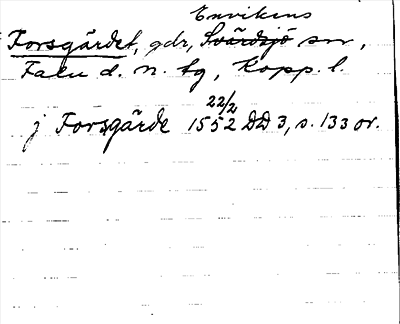 Envikens
Forsgärdet, gdr, Svärdsjö sn,
Falu d. n. tg, Kopp. l.
22/2
j Forsgärde 1552 DD 3, s. 133 or.